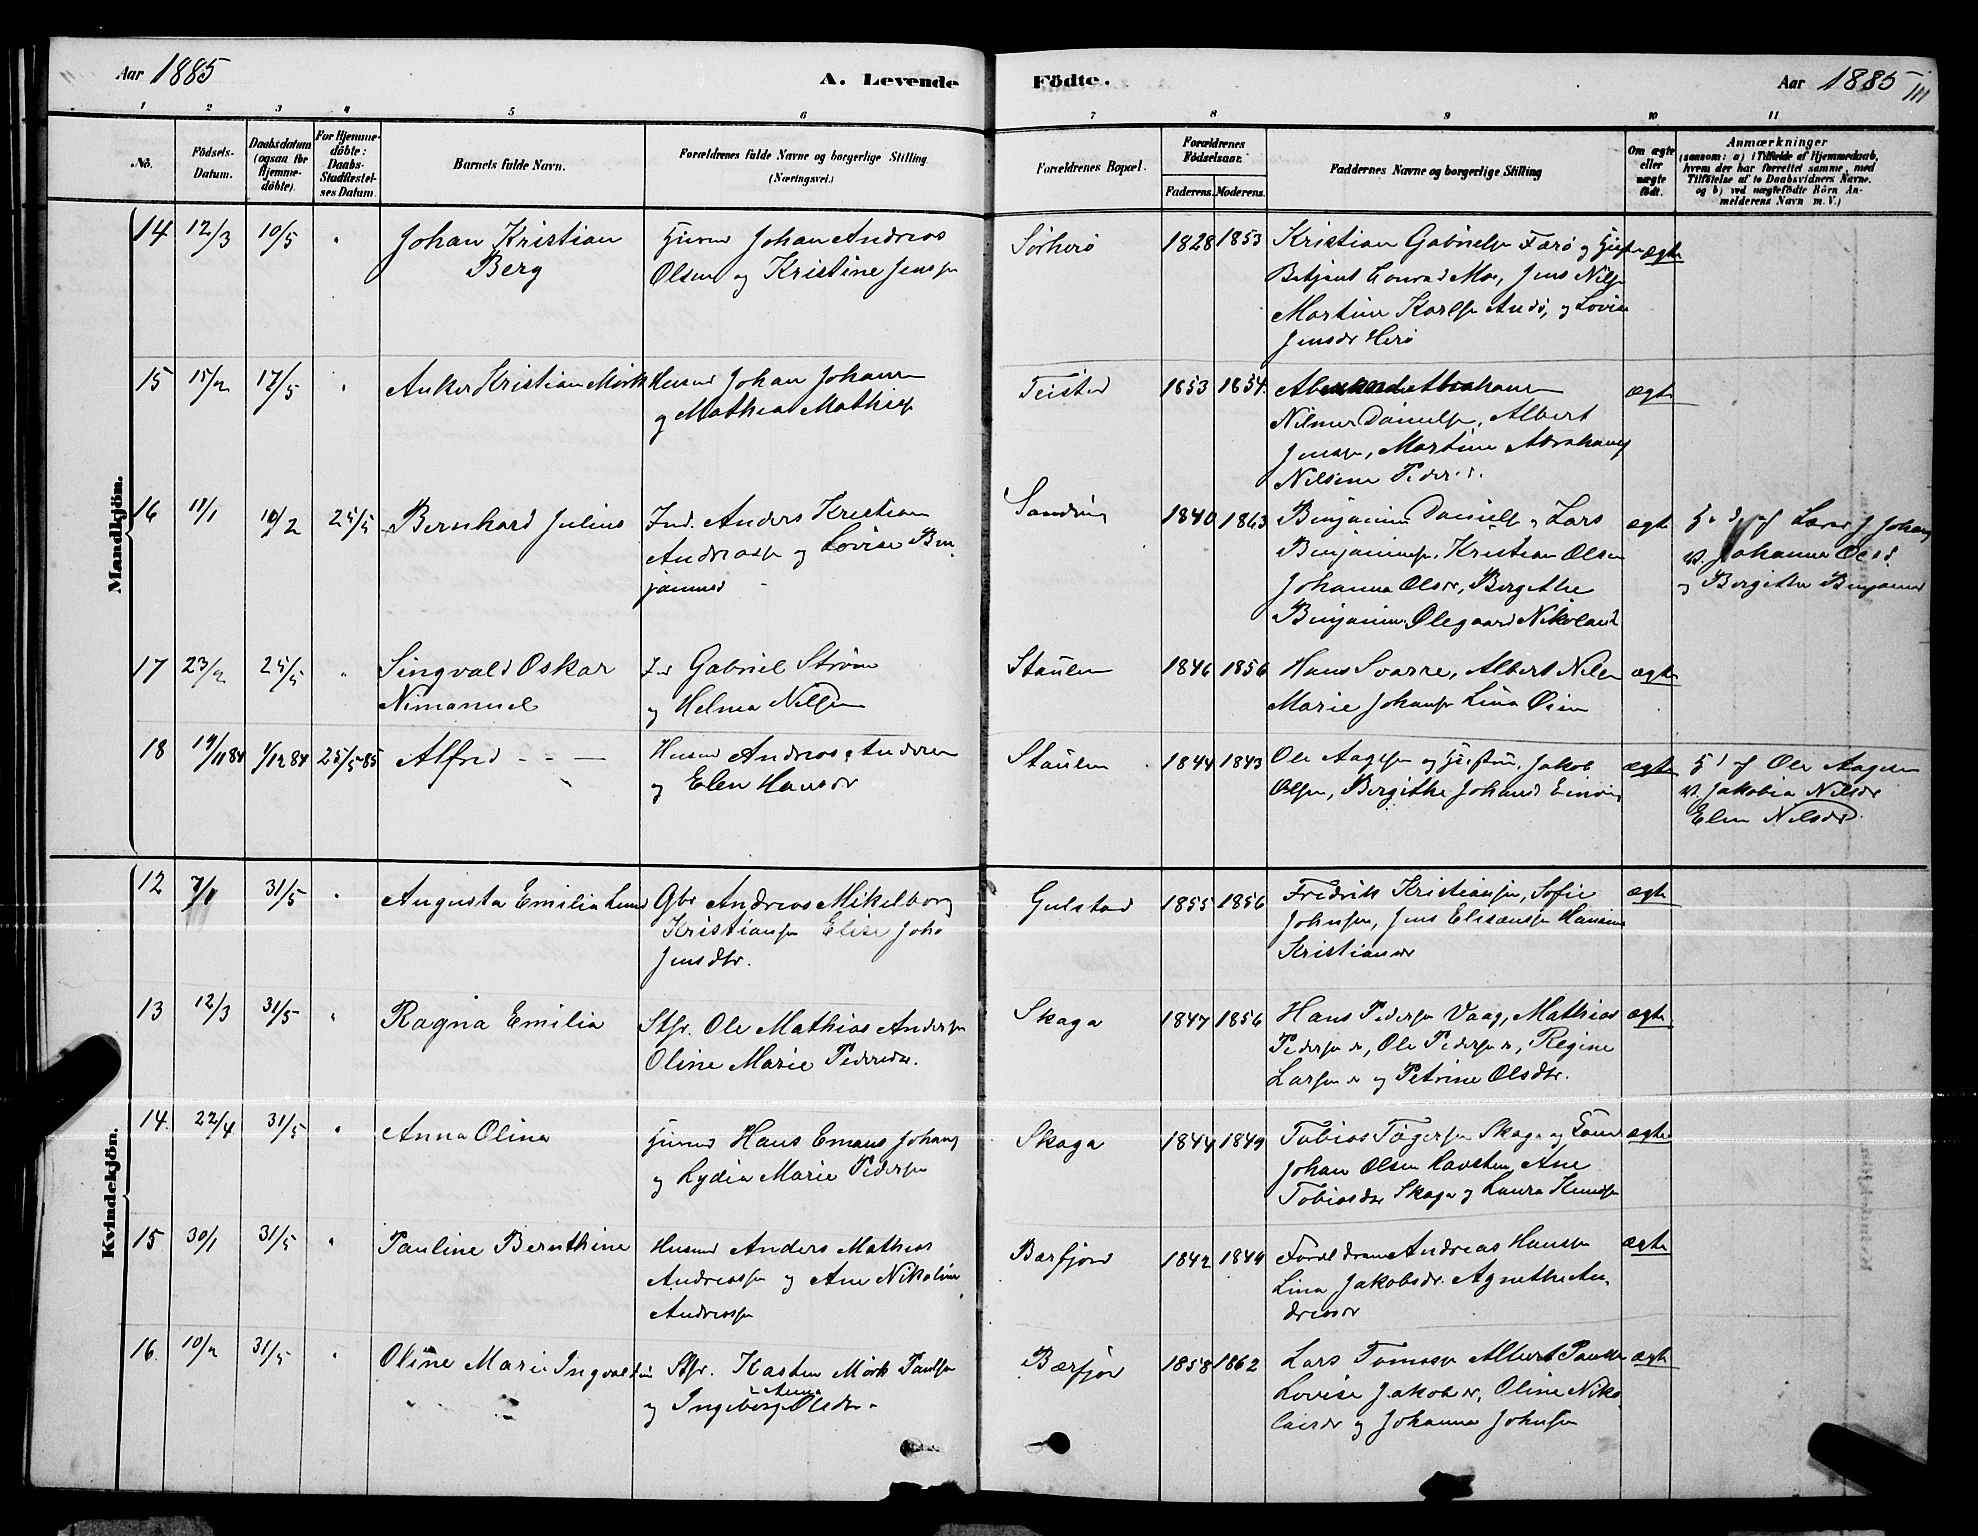 Aar 1885
A. Levende
Födte.
Aar 1885
111
1 2 3 4 5 6 7 8 9 10 11
No.
Födsels-
Datum.
Daabsdatum
(ogsaa for
Hjemme-
döbte).
For Hjemme-
döbte:
Daabs-
Stadfæstel-
ses Datum.
Barnets fulde Navn.
Forældrenes fulde Navne og borgerlige Stilling
(Næringsvei.)
Forældrenes Bopæl.
Forældrenes
Födselsaar.
Faderens. Moderens.
Faddernes Navne og borgerlige Stilling
Om ægte
eller
uægte
födt.
Anmærkninger
(saasom: a) i Tilfælde af Hjemmedaab,
hvem der har forrettet samme, med
Tilföielse af to Daabsvidners Navne.
og b) ved uægtefödte Börn An-
melderens Navn m. V.)
Mandkjön.
14 12/3 10/5 " Johan Kristian
Berg
Johan Andreas
Olsen og Kristine Jensen
1828 1853
Kristian Gabrielsen Færø og
Conrad Moe, Jens Nilsen
Martine Karlsen Andø, og Lovise
Jensdr Herø
ægte
15 15/2 17/5 " Anker Kristian Mørk
Husmd Johan Johansen
og Mathea Mathisen
Teisted
1853 1854.
Nilmer Danielsen, Albert
Jensen, Martine Abrahams
Nilsine Pedersd.
ægte
16 11/1 25/5 Bernhard Julius
Ind. Anders Kristian
Andreassen og Lovise Ben-
jaminsd
1840 1863
Benjamin Danielsen, Lars
Benjaminsen, Kristian Olsen
Johanna Olsdr, Bergithe
Benjamin. Olegaard Nikolaisd
ægte
Johanna Olsd.
og Bergithe Benjamind
17 23/2 25/5 " Singvald Oskar
Nimanuel
Ind Gabriel Strøm
og Helma Nilsen
Staulen
1846 1856
Hans Svarre, Albert Nilsen
Marie Johansen Lina Øien
ægte
18 19/11 84 1/12 84 25/5 85 Alfred
Husmd Andreas Andersen
og Elen Hansdr
Staulen
1844 1843
Ole Aagesen og Hustru, Jakob
Olsen, Bergithe Johansd
ægte
Hd af Ole Aagesen
v. Jakobia Nilsdr
Elen Nilsdr.
Kvindekjön.
12 7/1 31/5 " Augusta Emilia Lund
Gbr Andreas Mikelborg
Kristiansen Elise Joha
Jensdtr.
Gulstad
1855 1856
Fredrik Kristiansen, Sofie
Johnsen, Jens Eliseussen Hansine
Kristiansdr
ægte
13 12/3 31/5 " Ragna Emilia
Stfr. Ole Mathias Andersen
Oline Marie Pedersdr.
Skaga
1847 1856
Hans Pedersen Vaag, Mathias
Pedersen, Ole Pedersen, Regine
Larsen og Petrine Olsdtr.
ægte
14. 22/4 31/5 " Anna Olina
Hans Emaus Johans
og Lydia Marie Pedersen
Skaga
1844 1849
Tobias Tøgersen Skaga og
Johan Olsen Havsten, Ane
Tobiasdr Skaga og Laura Knudsen
ægte
15 30/1 31/5 " Pauline Bernthine
Husmd Anders Mathias
Andreassen og Ane Nikolina
Andreassen
Bærfjord
1842 1844
Forældrene Andreas Hansen
Lina Jakobsdr. Agnethe An-
dreasdr
ægte
16. 10/2 31/5 " Oline Marie Ingvaldine
Stfr. Kasten Mørk Paulsen
og Ingeborg Anna Olsdtr
Bærfjor
1858 1862
Lars Tomasen Albert Paulsen
Lovise Jakobsdr, Oline Niko-
laisdr og Johanna Johnsen
ægte